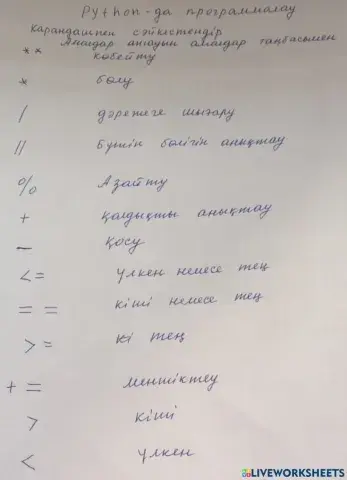 Python-да программалау
Карандашпен сәйкестендір
Амалдар атауын амалдар таңбасымен
** көбейту
* бөлу
/ дәрежеге шығару
// Бүтін бөлігін анықтау
% Азайту
+ қалдықты анықтау
− қосу
<= үлкен немесе тең
== кіші немесе тең
>= кі тең
+= меншіктеу
> кіші
< үлкен
LIVEWORKSHEETS